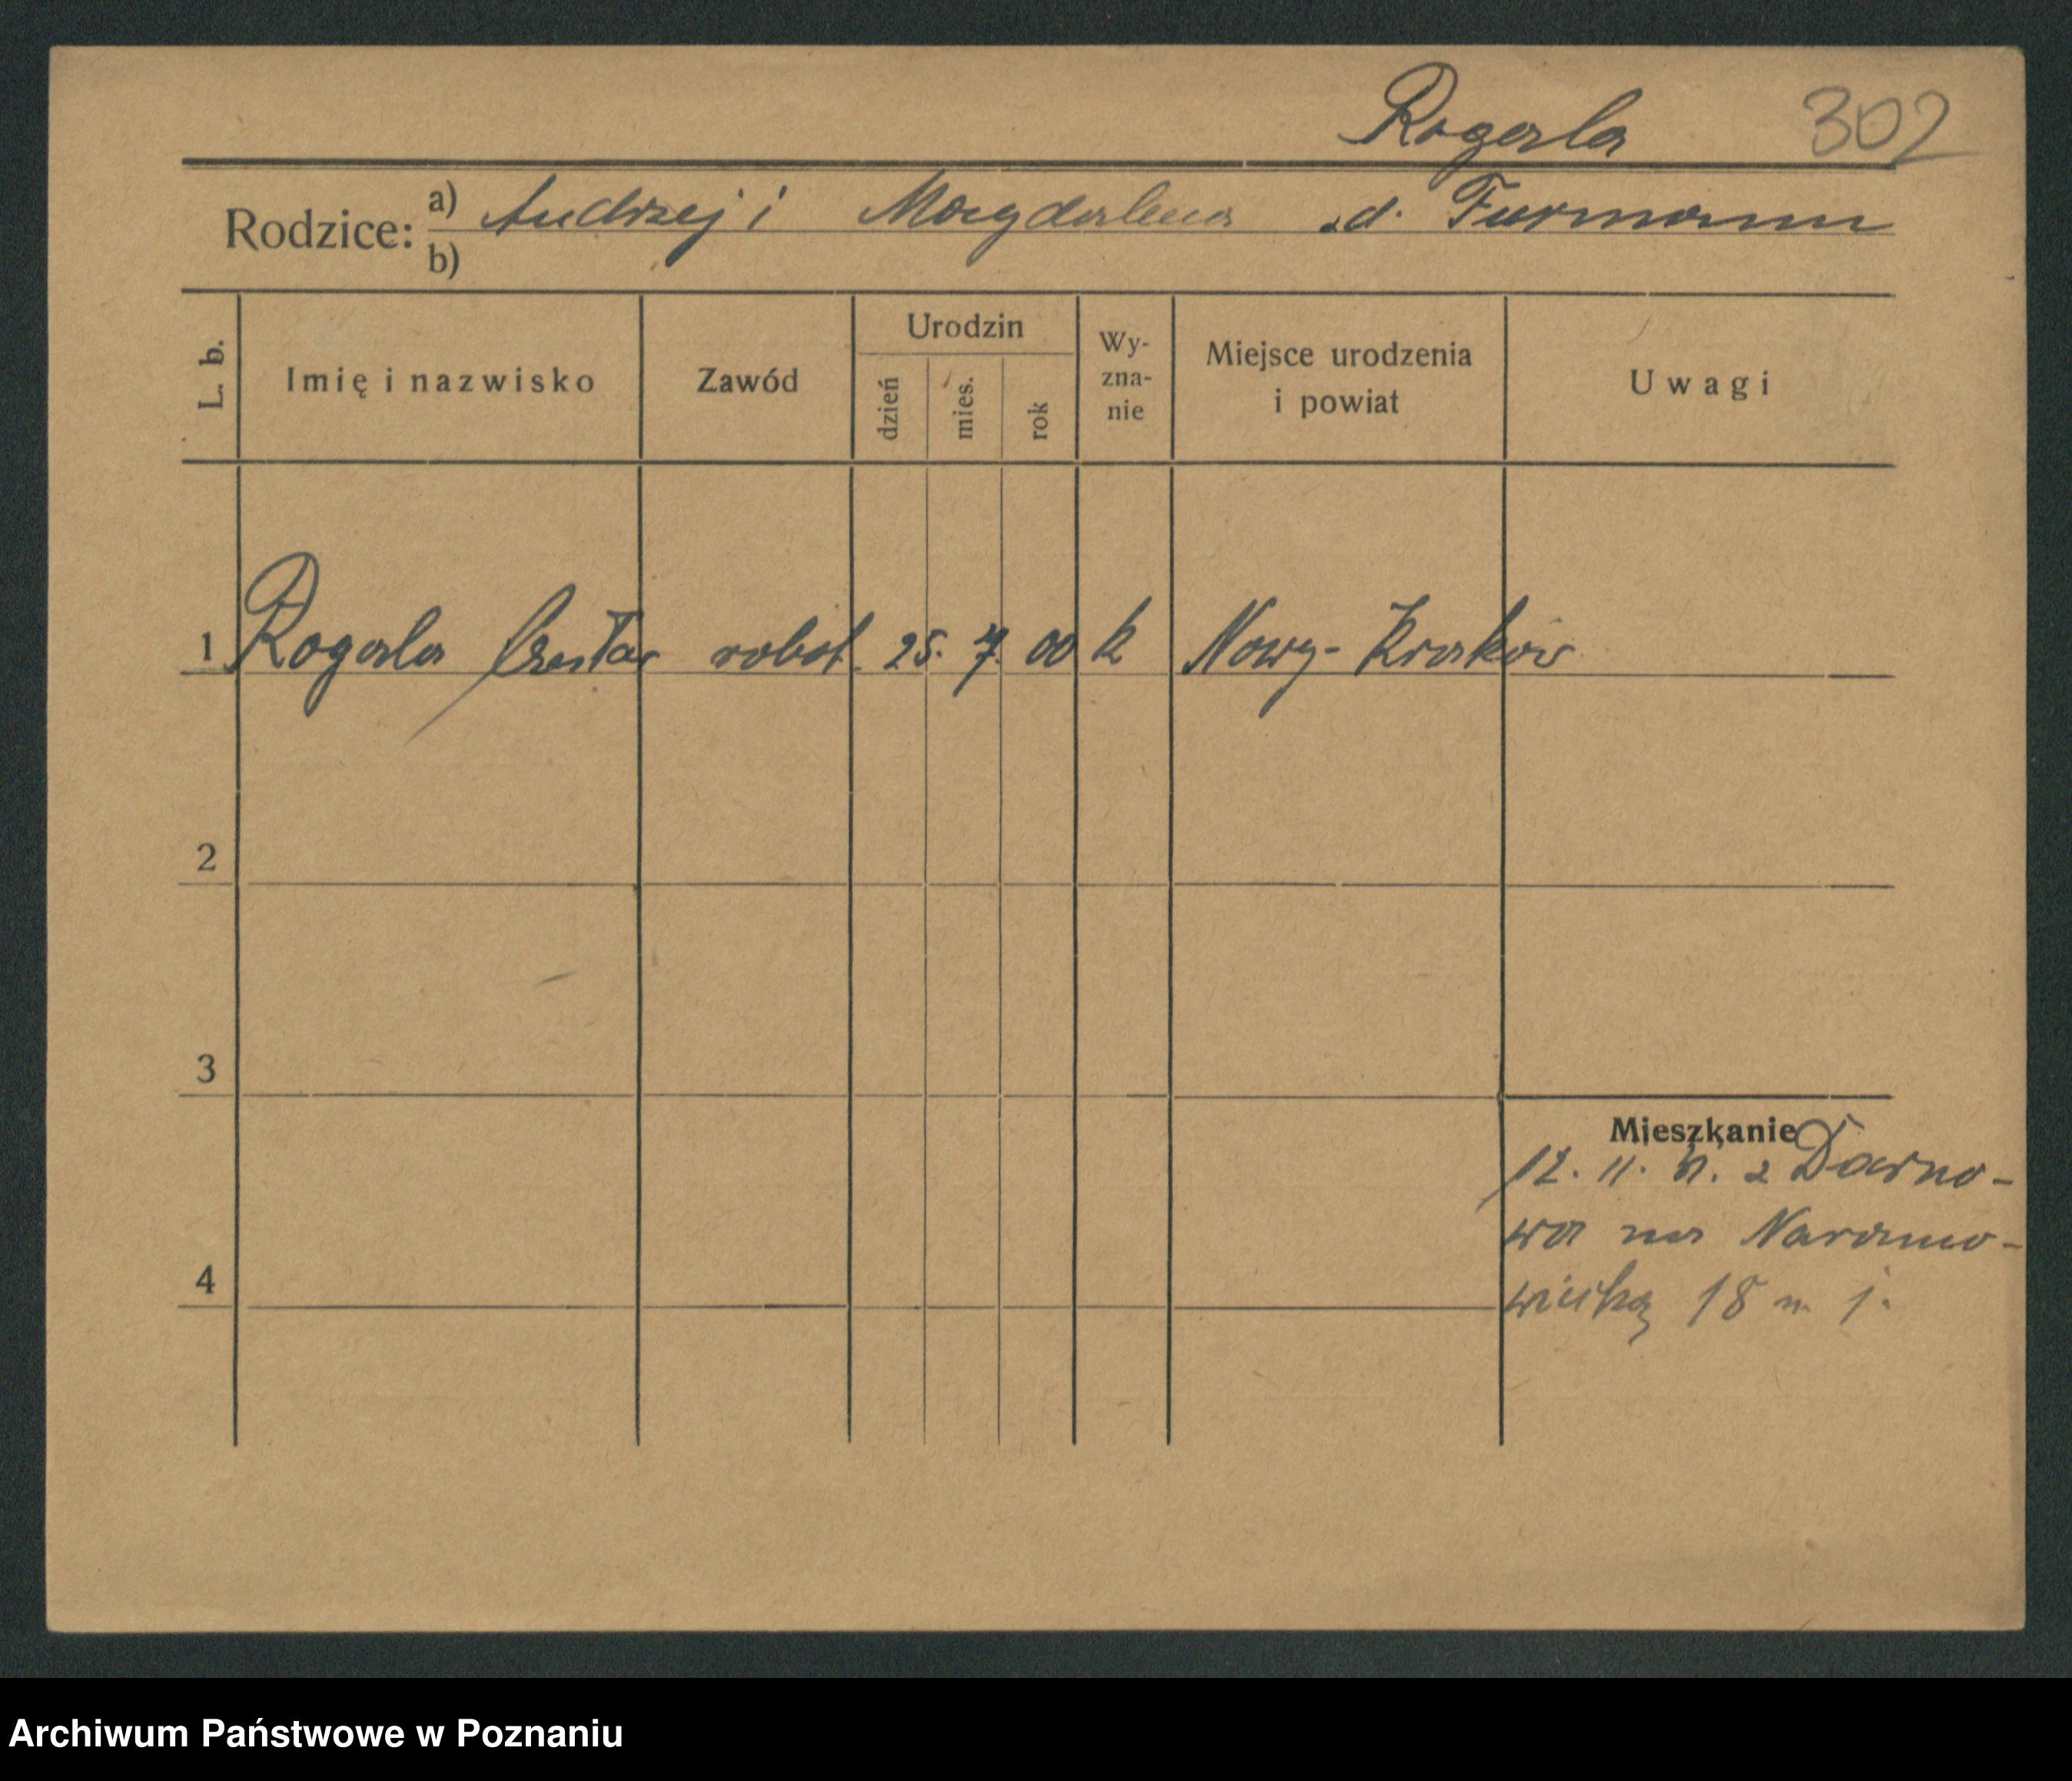 Rogala 302
Rodzice: a) Andrzej i Magdalena .d. Furmann
b)
L. b. Imię i nazwisko Zawód Urodzin dzień mies. rok Wy-zna-nie Miejsce urodzenia i powiat Uwagi
1 Rogala robot. 25. 7. 00 k Nowy-Kraków
2
3
Mieszkanie
12. 11. 2 Darno-
wa na Naramo-
4
wicką 18 m 1.
Archiwum Państwowe w Poznaniu